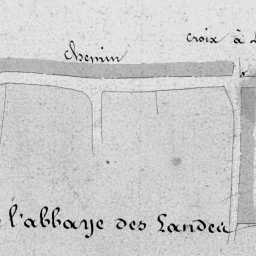 croix à
chemin
l'abbaye des Landes